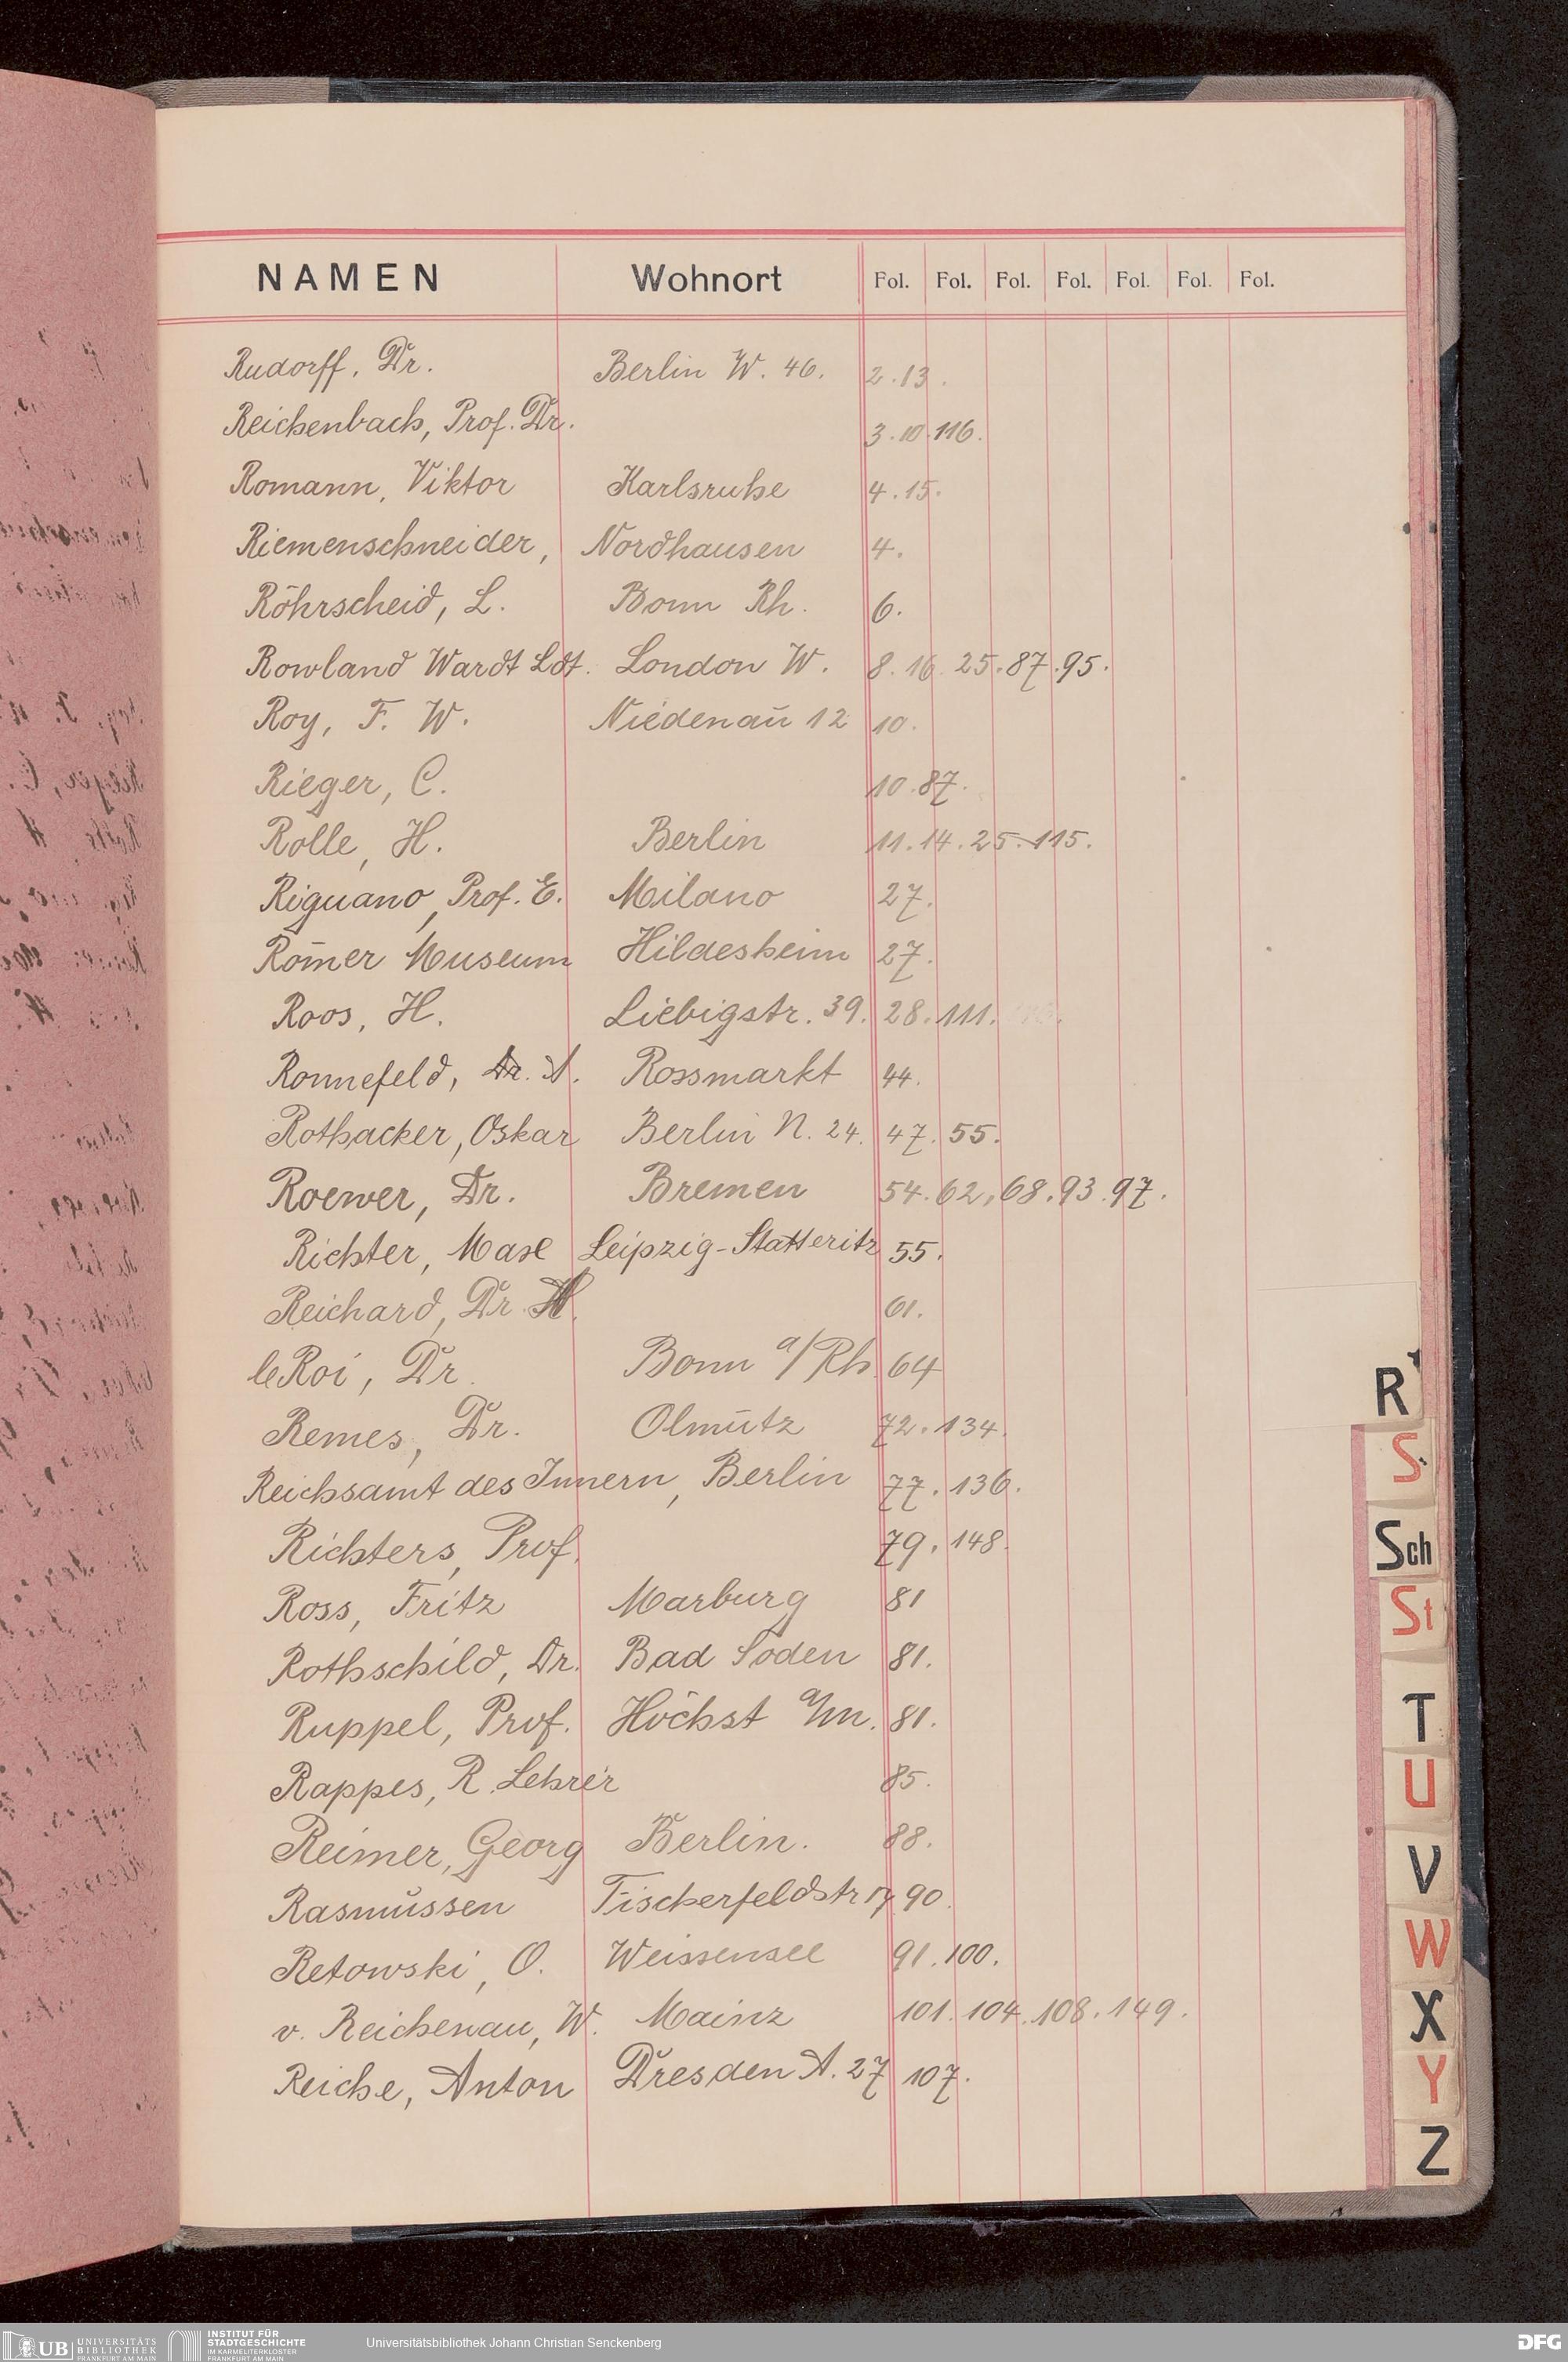 NAMEN Wohnort Fol. Fol. Fol. Fol. Fol. Fol. Fol.
Rudorff, Dr. Berlin W. 46. 2. 13.
Reichenbach, Prof. Dr. 3. 10. 116.
Romann, Viktor Karlsruhe 4. 15.
Riemenschneider, Nordhausen 4.
Röhrscheid, L. Bonn Rh. 6.
Rowland Wardt Ldt. London W. 8. 16. 25. 87. 95.
Roy, F. W. Niedenau 12 10.
Rieger, C. 10. 87.
Rolle, H. Berlin 11. 14. 25. 115.
Riguano, Prof. E. Milano 27.
Römer Museum Hildesheim 27.
Roos, H. Liebigstr. 39. 28. 111.
Ronnefeld, Dr. A. Rossmarkt 44.
Rothacker, Oskar Berlin N. 24. 47. 55.
Roewer, Dr. Bremen 54. 62, 68. 93. 97.
Richter, Max Leipzig-Statteritz 55.
Reichard, Dr. 61.
le Roi, Dr. Bonn a/Rh. 64
Remes, Dr. Olmütz 72. 134.
Reichsamt des Innern, Berlin 77. 136.
Richters, Prof. 79. 148.
Ross, Fritz Marburg 81
Rothschild, Dr. Bad Soden 81.
Ruppel, Prof. Höchst a/m. 81.
Rappes, R. Lehrer 85.
Reimer, Georg Berlin. 88.
Rasmussen Fischerfeldstr 17 90.
Retowski, O. Weissensee 91. 100.
v. Reichenau, W. Mainz 101. 104. 108. 149.
Reiche, Anton Dresden A. 27 107.
R
S
Sch
St
T
U
V
W
X
Y
Z
UB UNIVERSITÄTS
BIBLIOTHEK
FRANKFURT AM MAIN
INSTITUT FÜR
STADTGESCHICHTE
IM KARMELITERKLOSTER
FRANKFURT AM MAIN
Universitätsbibliothek Johann Christian Senckenberg
DFG